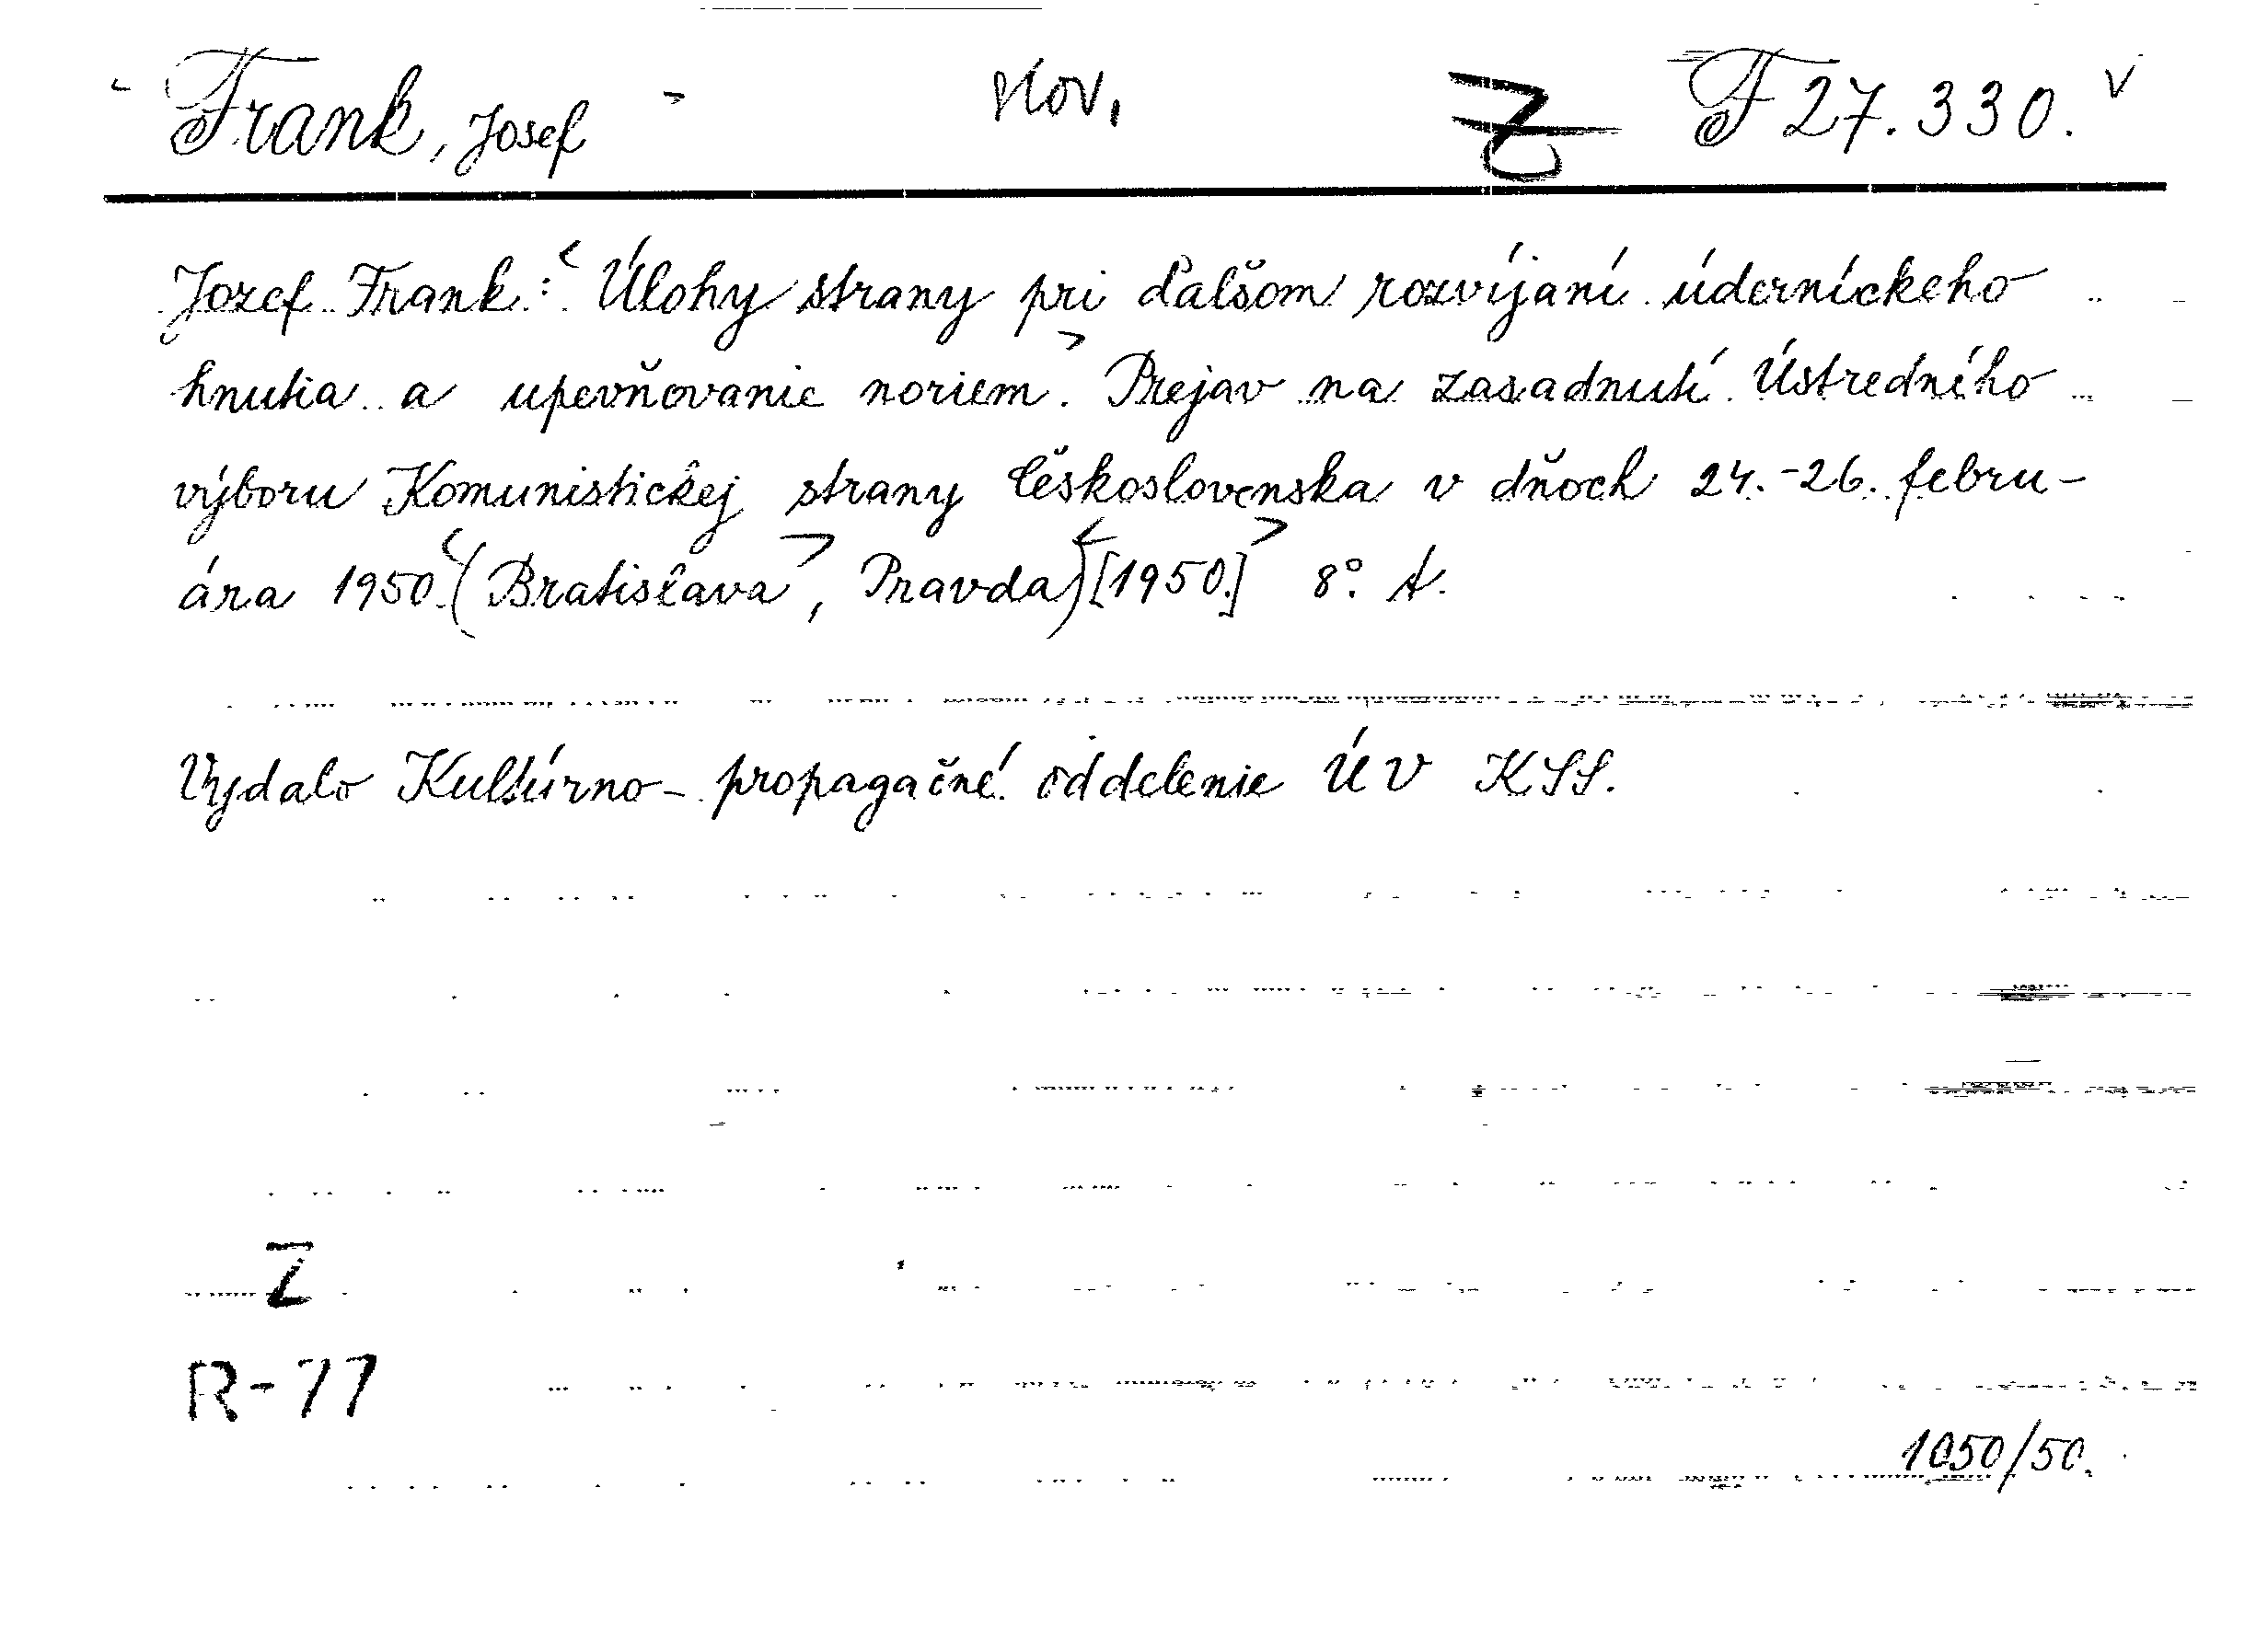 Frank, Josef slov. Z F 27.330. v
Jozef Frank: Úlohy strany pri ďalšom rozvíjaní úderníckeho
hnutia a upevňovanie noriem. Prejav na zasadnutí Ústredního
výboru Komunistickej strany Československa v dňoch 24.-26. febru-
ára 1950. (Bratislava, Pravda) [1950.] 8° A.
Vydalo Kultúrno-propagačné oddelenie ÚV KSS.
Z
R-77
1050/50.